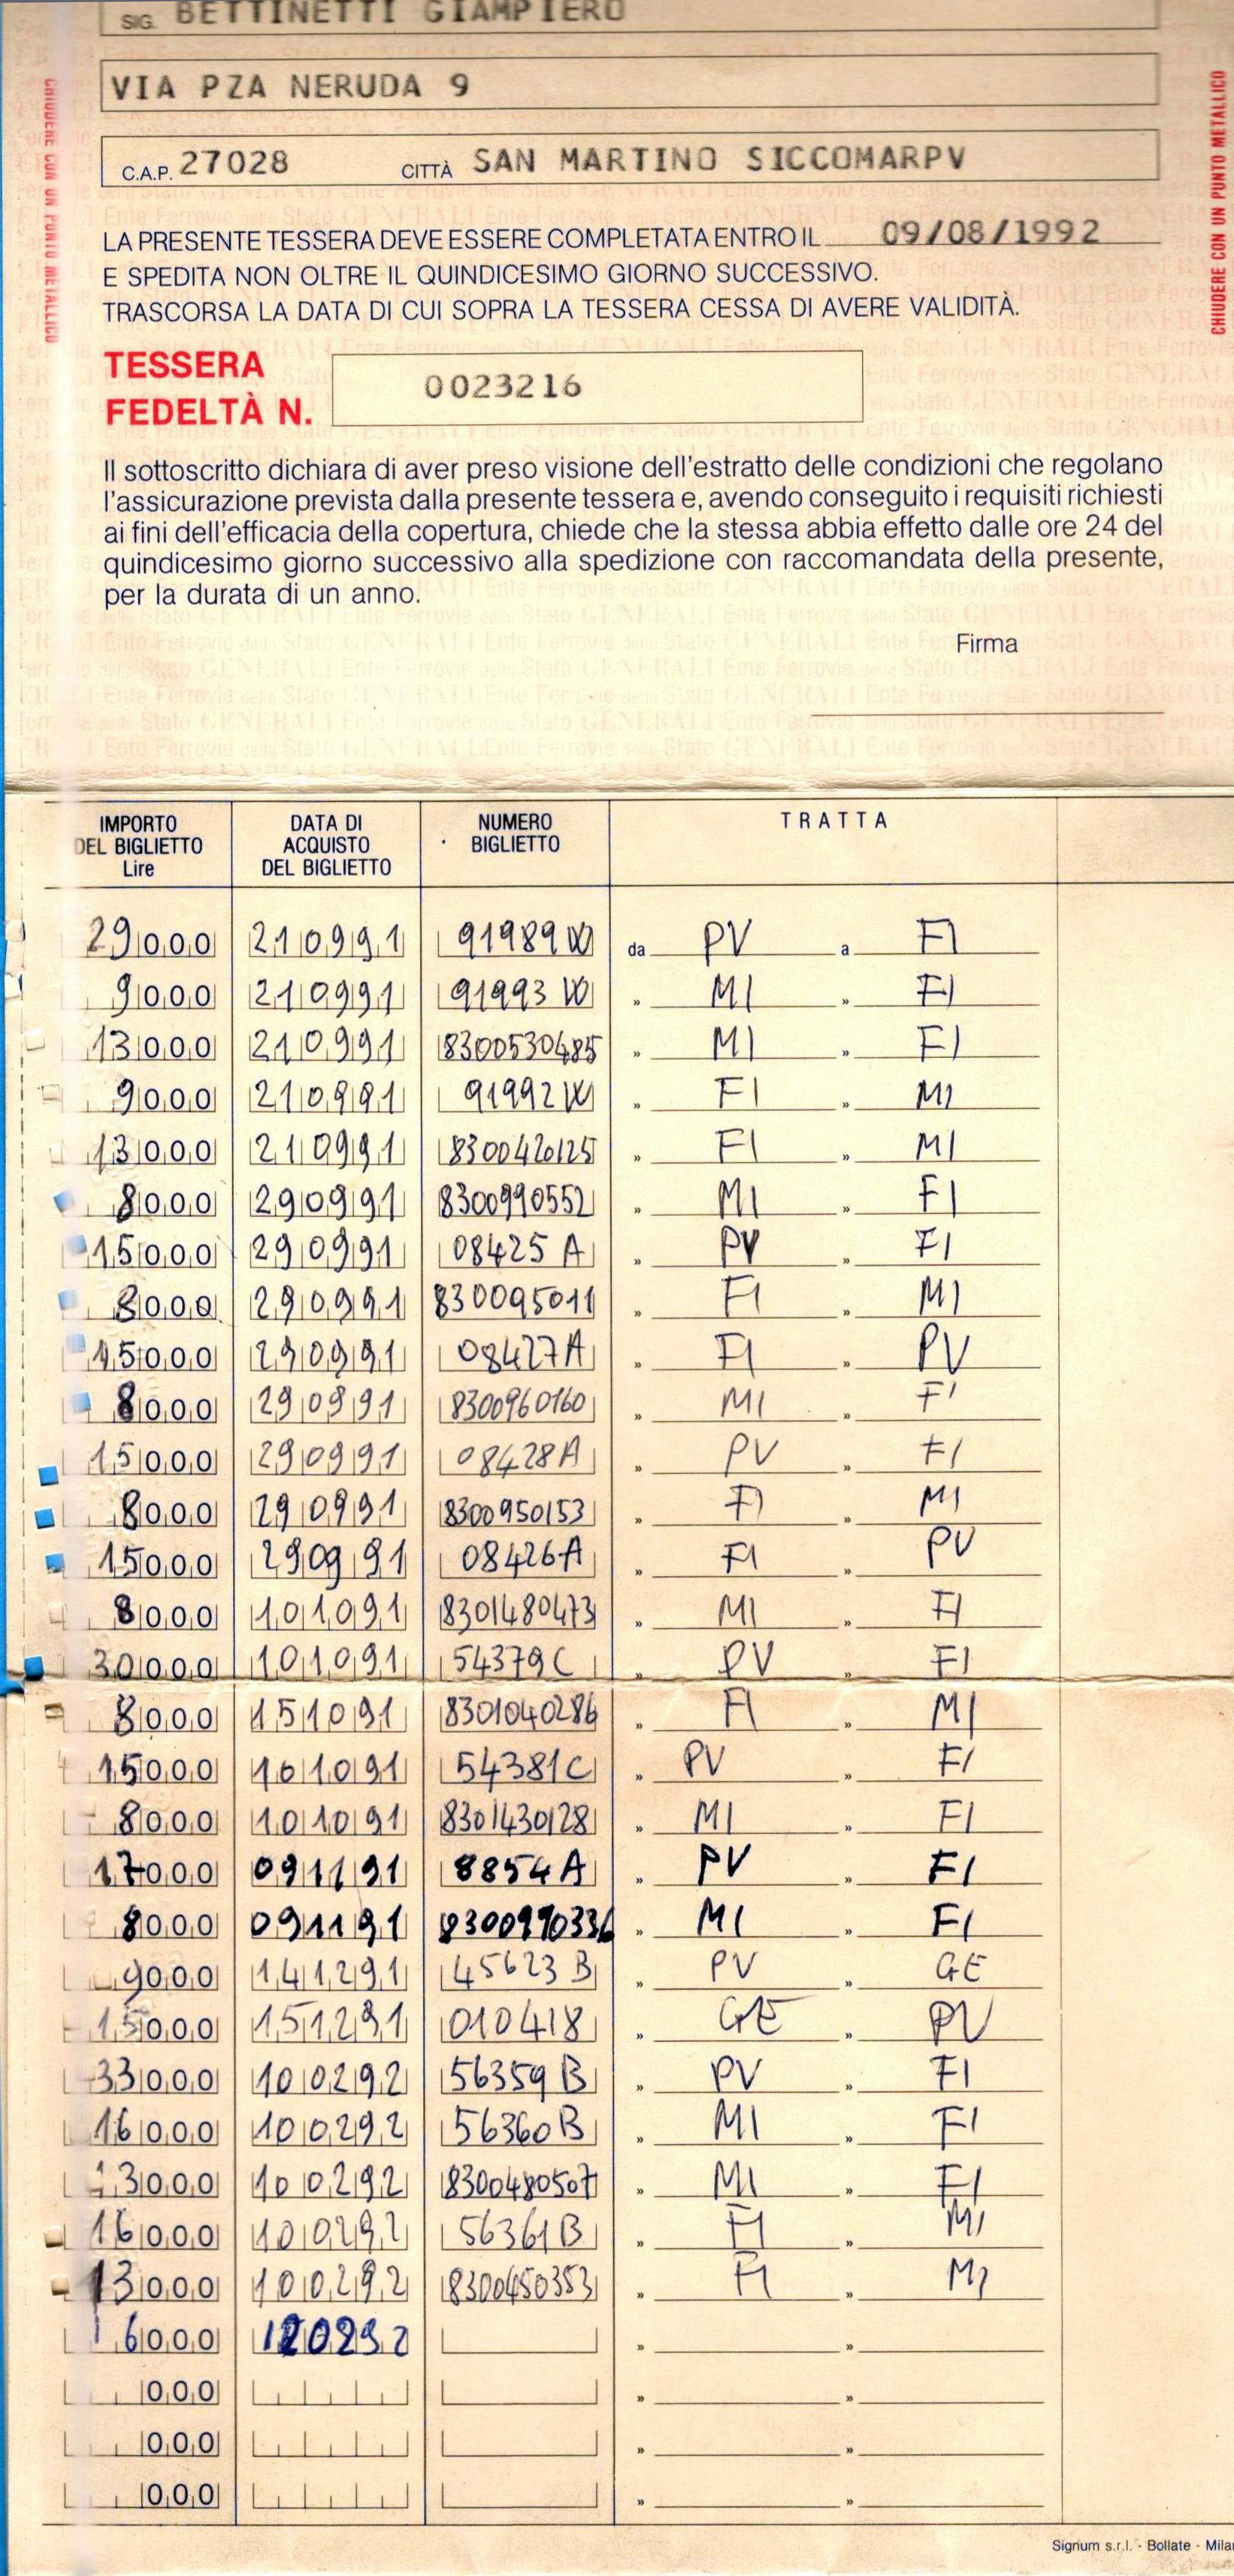 SIG. BETTINETTI GIAMPIERO
VIA PZA NERUDA 9
C.A.P. 27028 CITTÀ SAN MARTINO SICCOMARPV
LA PRESENTE TESSERA DEVE ESSERE COMPLETATA ENTRO IL 09/08/1992
E SPEDITA NON OLTRE IL QUINDICESIMO GIORNO SUCCESSIVO.
TRASCORSA LA DATA DI CUI SOPRA LA TESSERA CESSA DI AVERE VALIDITÀ.
CHIUDERE CON UN PUNTO METALLICO
CHIUDERE CON UN PUNTO METALLICO
TESSERA
FEDELTÀ N. 0023216
Il sottoscritto dichiara di aver preso visione dell'estratto delle condizioni che regolano
l'assicurazione prevista dalla presente tessera e, avendo conseguito i requisiti richiesti
ai fini dell'efficacia della copertura, chiede che la stessa abbia effetto dalle ore 24 del
quindicesimo giorno successivo alla spedizione con raccomandata della presente,
per la durata di un anno.
Firma
IMPORTO DEL BIGLIETTO Lire DATA DI ACQUISTO DEL BIGLIETTO NUMERO BIGLIETTO TRATTA
29000 210991 91989 W da PV a FI
9000 210991 91993 W " MI " FI
13000 210991 8300530485 " MI " FI
9000 210991 91992 W " FI " MI
13000 210991 8300420125 " FI " MI
8000 290991 8300990552 " MI " FI
15000 290991 08425 A " PV " FI
8000 290991 830095011 " FI " MI
15000 290991 08427A " FI " PV
8000 290991 8300960160 " MI " FI
15000 290991 08428A " PV " FI
8000 290991 8300950153 " FI " MI
15000 290991 08426A " FI " PV
8000 101091 8301480473 " MI " FI
30000 101091 54379C " PV " FI
8000 151091 8301040286 " FI " MI
15000 101091 54381C " PV " FI
8000 101091 8301430128 " MI " FI
17000 091191 8854 A " PV " FI
8000 091191 8300990336 " MI " FI
9000 141291 45623 B " PV " GE
15000 151291 010418 " GE " PV
33000 100292 56359 B " PV " FI
16000 100292 56360B " MI " FI
13000 100292 8300480507 " MI " FI
16000 100292 56361B " FI " MI
13000 100292 8300450353 " FI " MI
16000 120292 " "
000 " "
000 " "
000 " "
Signum s.r.l. - Bollate - Mila